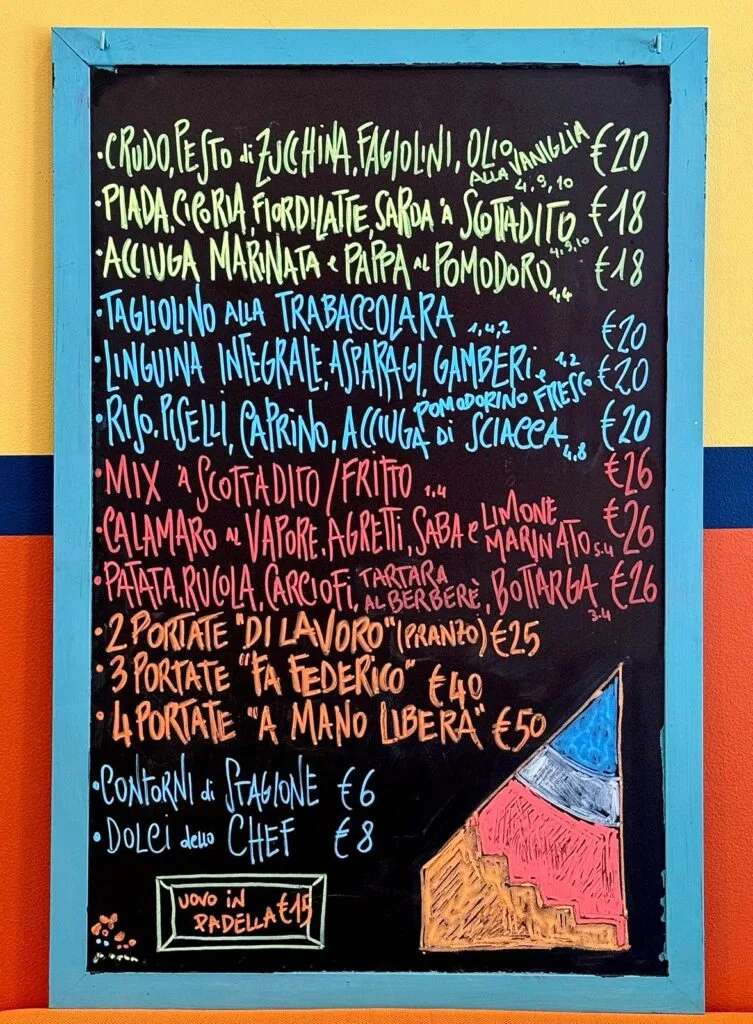 • CRUDO, PESTO di ZUCCHINA, FAGIOLINI, OLIO ALLA VANIGLIA €20
4, 9, 10
• PIADA, CICORIA, FIORDILATTE, SARDA 'A SCOTTADITO €18
4, 9, 10
• ACCIUGA MARINATA e PAPPA AL POMODORO €18
1,4
• TAGLIOLINO ALLA TRABACCOLARA 1,4,2 €20
• LINGUINA INTEGRALE, ASPARAGI, GAMBERI e 1,2 €20
POMODORINO FRESCO
• RISO, PISELLI, CAPRINO, ACCIUGA DI SCIACCA 4,8 €20
• MIX 'A SCOTTADITO / FRITTO 1,4 €26
• CALAMARO AL VAPORE, AGRETTI, SABA e LIMONE MARINATO 3-4 €26
• PATATA, RUCOLA, CARCIOFI, TARTARA AL BERBERÈ, BOTTARGA €26
3-4
• 2 PORTATE "DI LAVORO" (PRANZO) €25
• 3 PORTATE "FA FEDERICO" €40
• 4 PORTATE "A MANO LIBERA" €50
• CONTORNI di STAGIONE €6
• DOLCI dello CHEF €8
UOVO IN
PADELLA €15